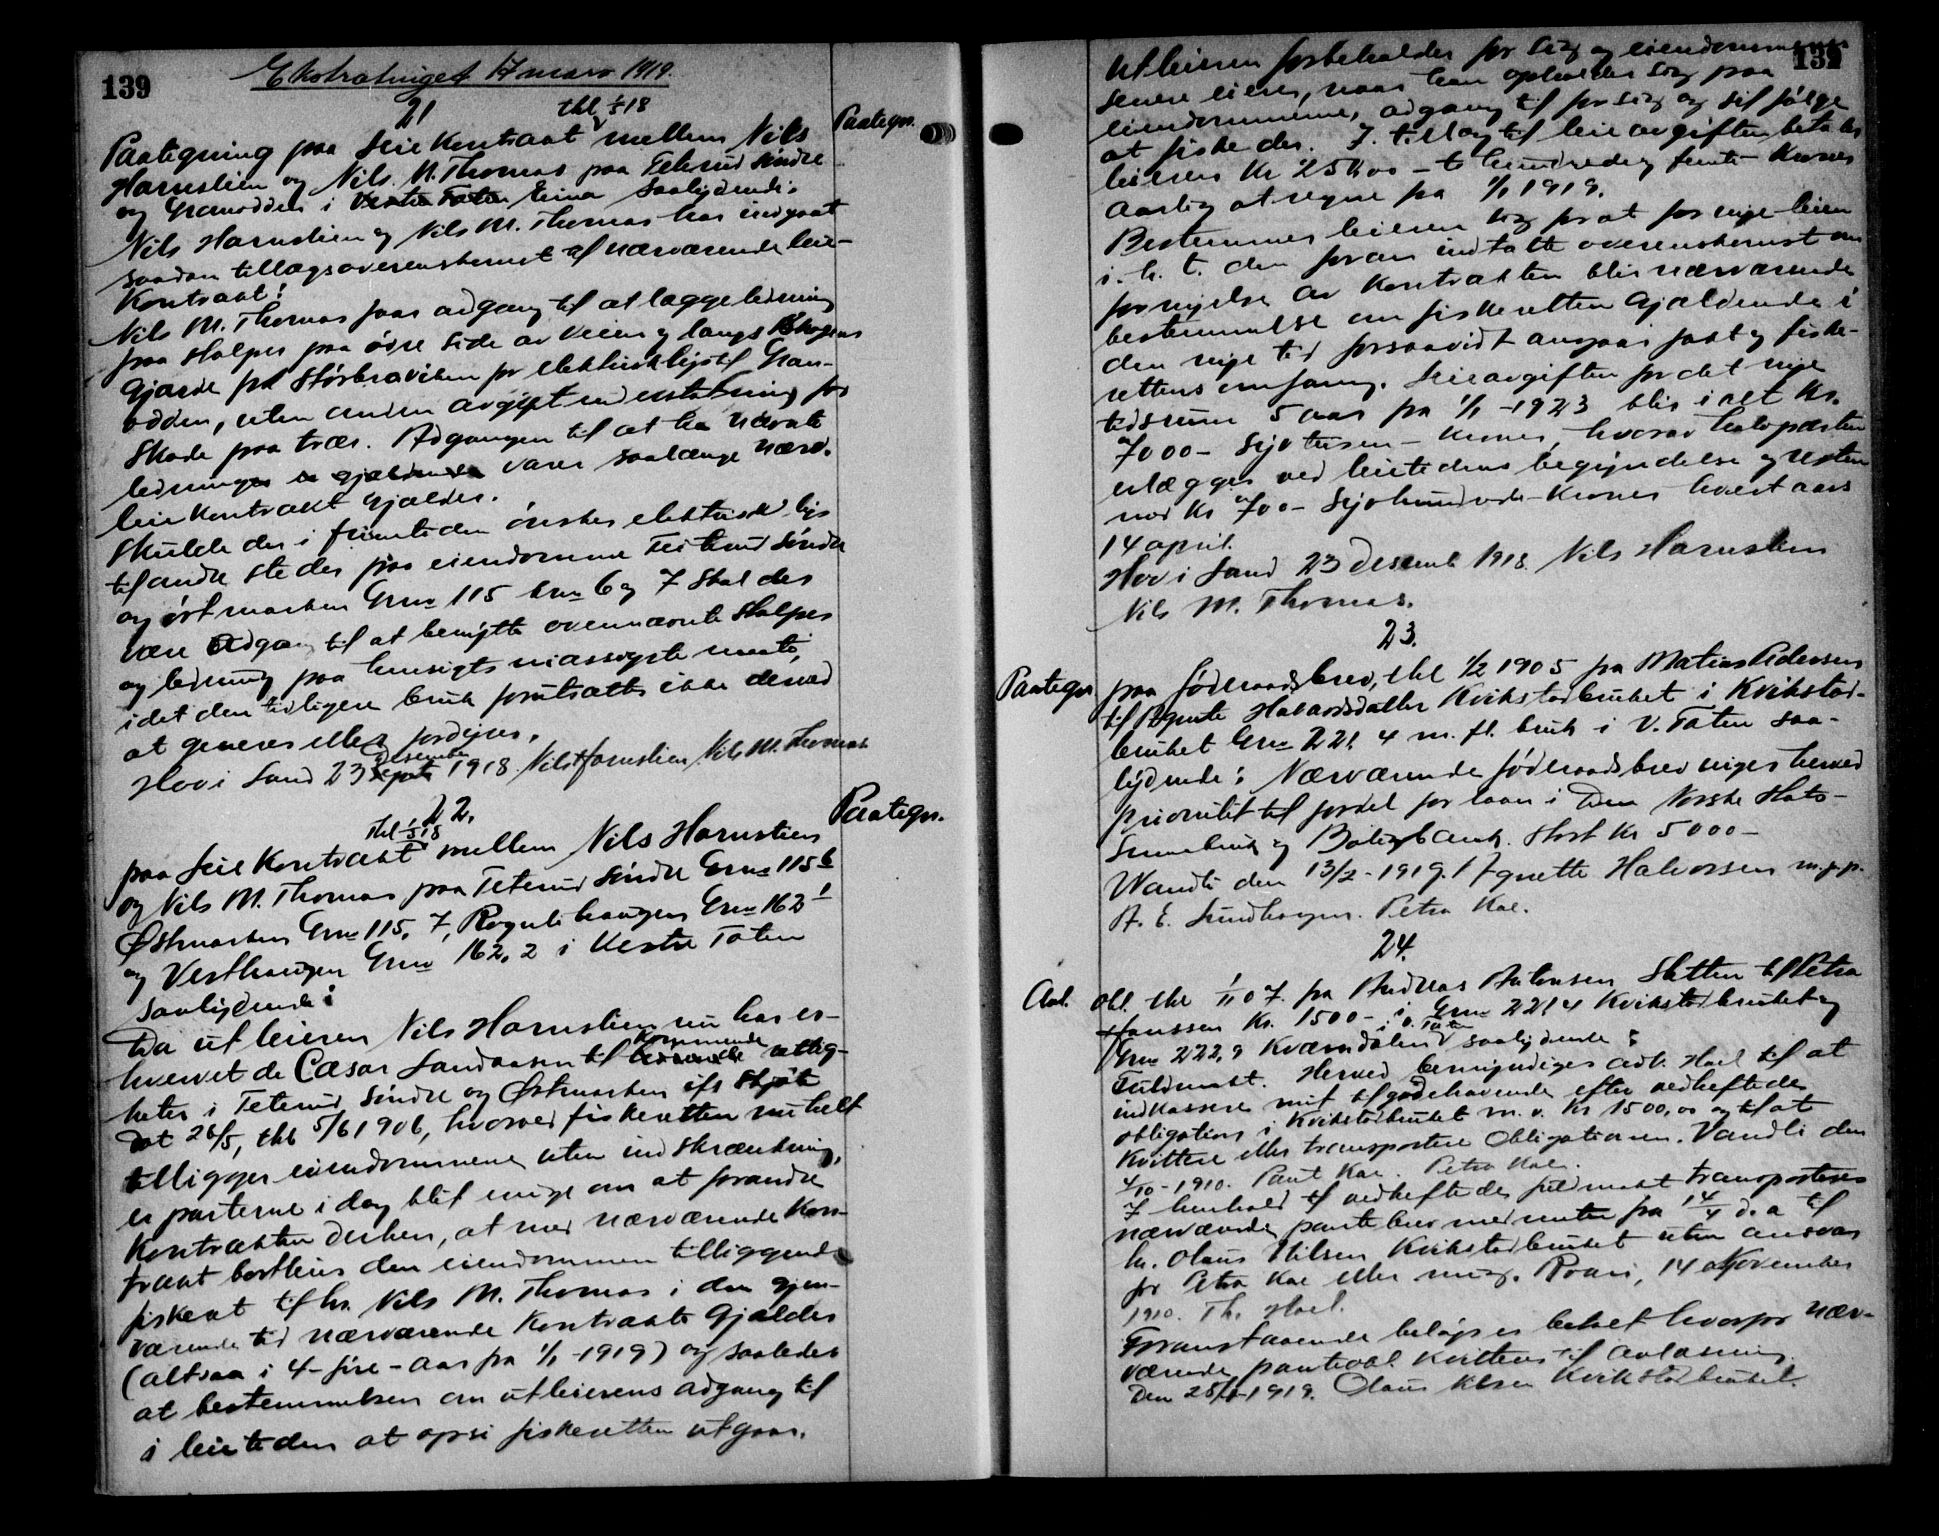 139
Ekstratinget 17 mars 1919.
21
thl 1/5 18
Paategn.
Paategning paa Leiekontrakt mellem Nils
Harnslien og Nils M. Thomas paa Teterud søndre
og Granodden i Vestre Toten Eina saalydende:
Nils Harnslien og Nils M. Thomas har indgaat
saadan tillægsoverenskomst af nærværende leie-
kontrakt:
Nils M. Thomas faar adgang til at lægge ledning
paa stolper paa øvre side av veien og langs skogens
gjærde fra Störbraviken for elektrisk lys til Gran-
odden, uten anden avgift end erstatning for
skade paa trær. Adgangen til at ha nævnte
ledninger varer saalænge nærv.
leiekontrakt gjælder.
Skulde der i fremtiden ønskes elektrisk lys
til andre steder paa eiendommene Teterud søndre
og østmarken Grno 115 bno 6 og 7 skal der
være adgang til at benytte ovennævnte stolper
og ledning paa hensigtsmæssigste maate,
idet den tidligere bruk forutsættes ikke derved
at generes eller fordyres.
Hov i Land 23 desember 1918. Nils Harnslien Nils M. Thomas
22.
thl 1/5 18
Paategn.
paa Leiekontrakt mellem Nils Harnslien
og Nils M. Thomas paa Teterud søndre Grno 115 6
Østmarken Grno 115, 7, Rognlihaugen Grno 162 1
og Vesthaugen Grno 162, 2 i Vestre Toten
saalydende:
Da utleieren Nils Harnslien nu har er-
hvervet de Cæsar Landaasen tilkommende rettig-
heter i Teterud søndre og Østmarken ifl skjøte
dat 26/5, thl 5/6 1906, hvorved fiskeretten nu helt
tilligger eiendommene uten indskrænkning,
er parterne i dag blit enige om at forandre
kontrakten derhen, at med nærværende kon-
trakt bortleies den eiendommen tilliggende
fiskeret til hr. Nils M. Thomas i den gjen-
værende tid nærværende kontrakt gjælder
(altsaa i 4- fire - aar fra 1/1 -1919) og saaledes
at bestemmelsen om utleierens adgang til
i leietiden at opsi fiskeretten utgaar.
139
Utleieren forbeholder for sig og eiendommens
senere eiere, naar han opholder sig paa
eiendommene, adgang til for sig og sit følge
at fiske der. I tillæg til leieavgiften betaler
leieren Kr 25%00 - to hundrede og femti - Kroner
aarlig at regne fra 1/1 1919.
Bestemmer leieren sig for at fornye leien
i. h. t. den foran indtatte overenskomst om
fornyelse av kontrakten blir nærværende
bestemmelse om fiskeretten gjældende i
den nye tid forsaavidt angaar jakt og fiske-
rettens omfang. Leieavgiften for det nye
tidsrum 5 aar fra 1/1 -1923 blir i alt Kr.
7000 - Syv tusen - kroner, hvorav halvparten
erlægges ved leietidens begyndelse og resten
med Kr 700 - Syvhundrede - Kroner hvert aars
14 april.
Hov i Land 23 desemb 1918. Nils Harnslien
Nils M. Thomas.
23.
Paategn.
paa föderaadsbrev, thl 1/2 1905 fra Matias Pedersen
til Agnete Halvorsdatter Kvikstadbruket i Kvikstad-
bruket Grno 221 4 m. fl. bruk i V. Toten saa-
lydende: Nærværende föderaadsbrev viges herved
prioritet til fordel for laan i Den Norske Stats-
Smaabruk og Boligbank stort Kr 5000 -
Vandli den 13/2 - 1919. Agnette Halvorsen m.p.p.
A. E. Sundhagen. Petra Koe.
24.
Avl.
obl. thl 1/11 07. fra Andreas Antonsen Sletten til Petra
Hanssen Kr. 1500 - i Grno 221 4 Kvikstadbruket og
Grno 222, 9 Kværndalen i V. Toten saalydende:
Fuldmakt. Herved bemyndiges adv. Hoel til at
indkassere mit tilgodehavende efter vedheftede
obligation i Kvikstadbruket m. v. Kr 1500,00 og til at
kvittere eller transportere Obligationen. Vandli den
4/10 - 1910. Paul Koe. Petra Koe.
I henhold til vedheftede fuldmakt transporteres
nærværende pantebrev med renter fra 14/4 d. a til
hr. Olaus Nilsen Kvikstadbruket uten ansvar
for Petra Koe eller mig. Roari, 14 November
1910. Th. Hoel.
Foranstaaende beløp er betalt hvorfor nær-
værende panteobl. kvitteres til avlæsning.
Den 25/2-1919. Olaus Nilsen Kvikstadbruket.